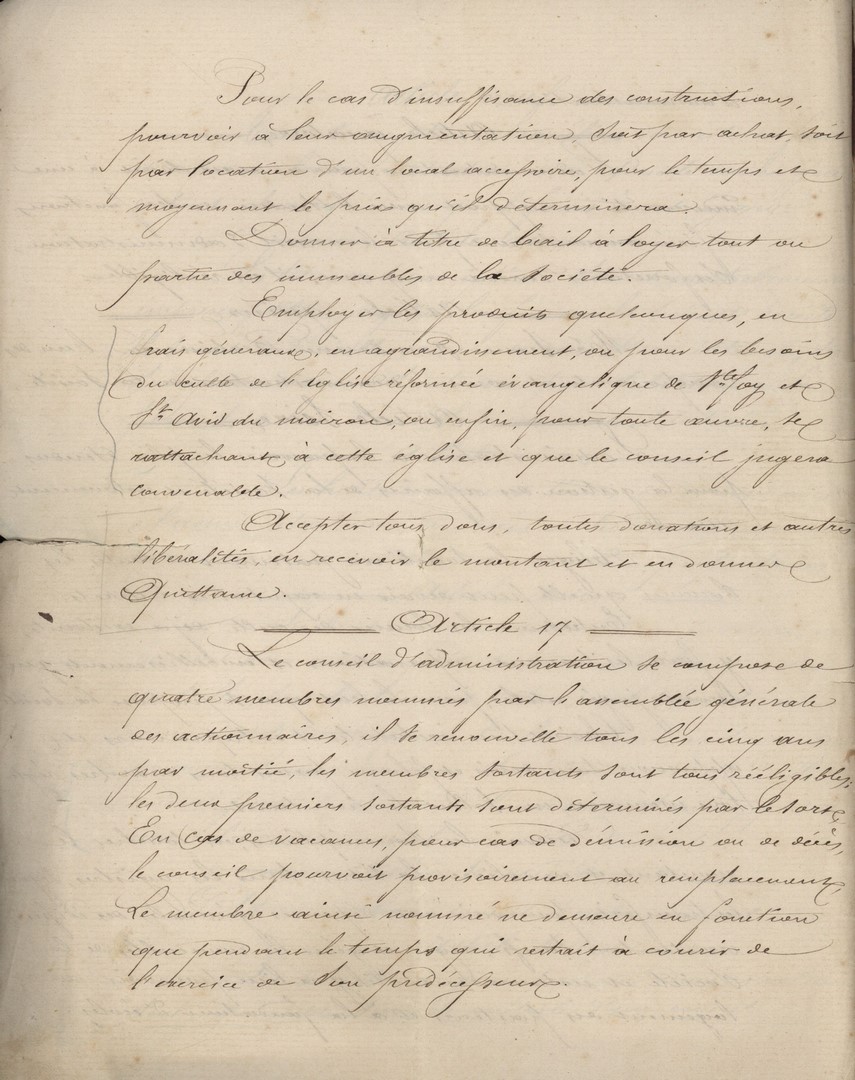 Pour le cas d'insuffisance des constructions,
pourvoir à leur augmentation, soit par achat, soit
par location d'un local accessoire, pour le temps et
moyennant le prix qu'il déterminera.
Donner à titre de bail à loyer tout ou
partie des immeubles de la société.
Employer les produits quelconques, en
frais généraux, en agrandissement, ou pour les besoins
du culte de l'Eglise réformée évangelique de Ste Foy et
St Avid du moiron, ou enfin, pour toute œuvre, se
rattachant à cette église et que le conseil jugera
convenable.
Accepter tous dons, toutes donations et autres
libéralités, en recevoir le montant et en donner
Quittance.
Article 17
Le conseil d'administration se compose de
quatre membres nommés par l'assemblée générale
des actionnaires, il se renouvelle tous les cinq ans
par moitié, les membres sortants sont tous rééligibles;
les deux premiers sortants sont déterminés par le sort.
En Cas de vacances, pour cas de démission ou de décès,
le conseil pourvoit provisoirement au remplacement,
Le membre ainsi nommé ne demeure en fonction
que pendant le temps qui restait à courir de
l'exercice de son prédécesseur.